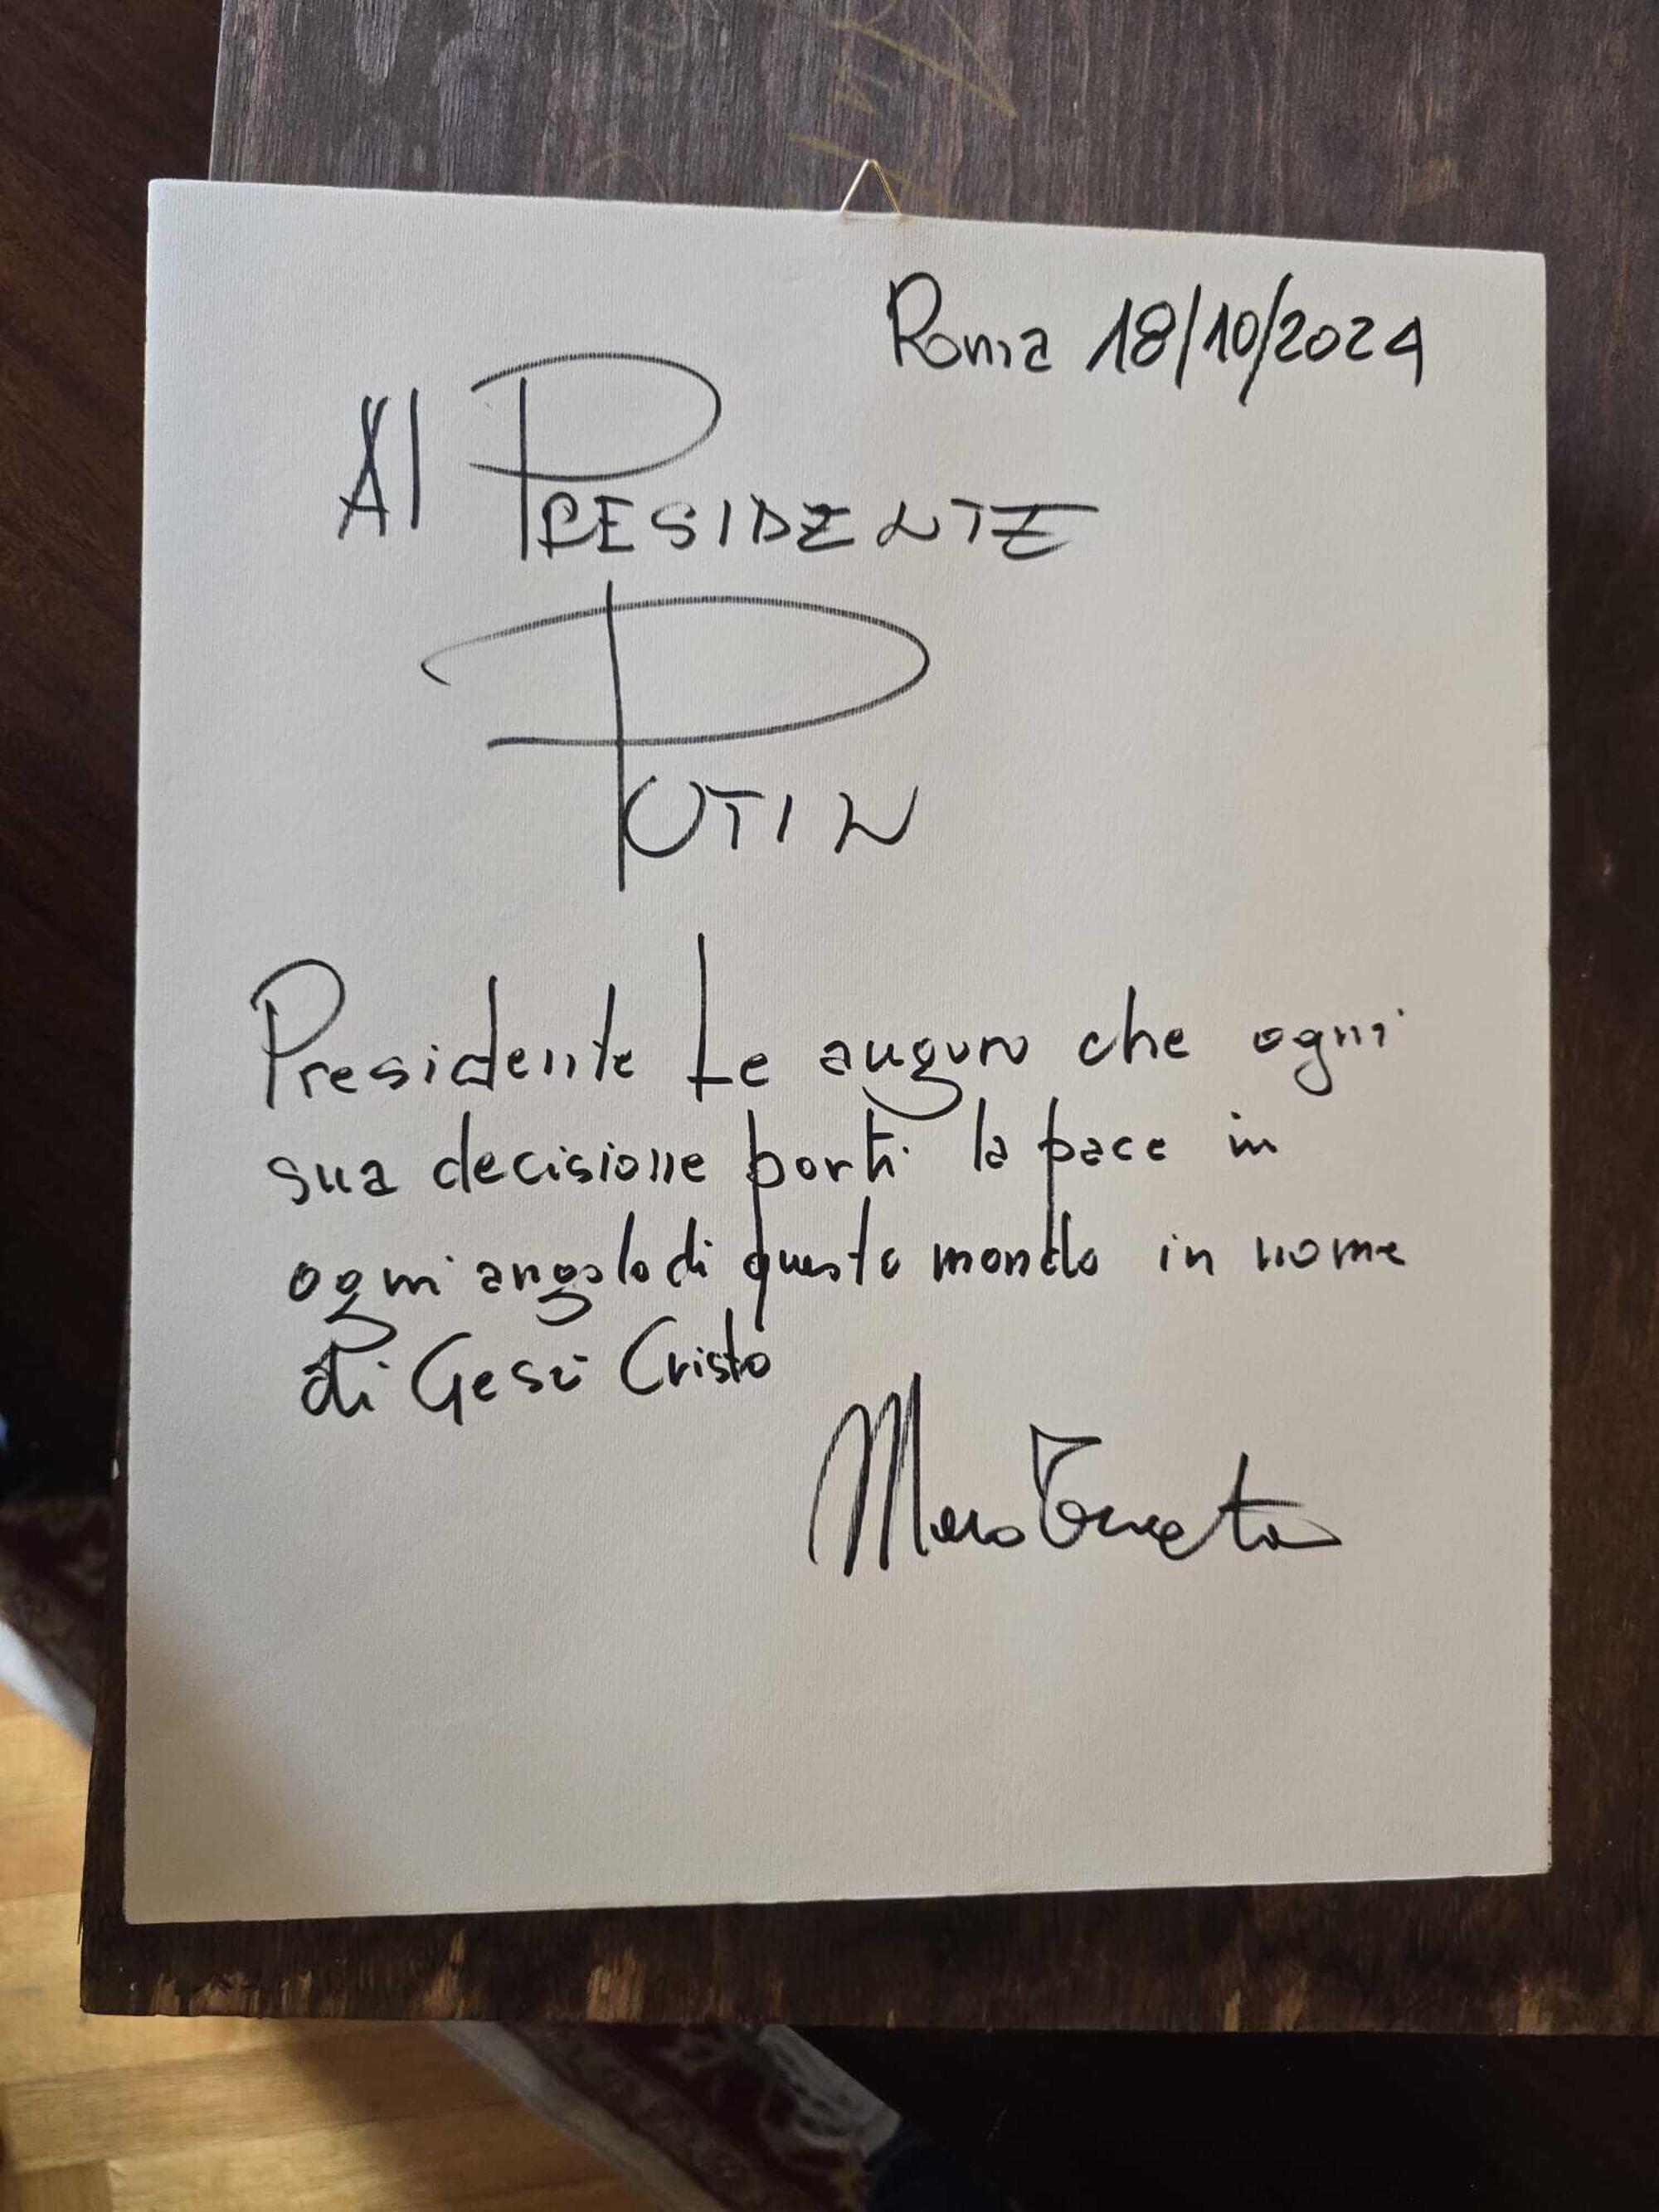 Roma 18/10/2024
Al PRESIDENTE
PUTIN
Presidente Le auguro che ogni
sua decisione porti la pace in
ogni angolo di questo mondo in nome
di Gesù Cristo